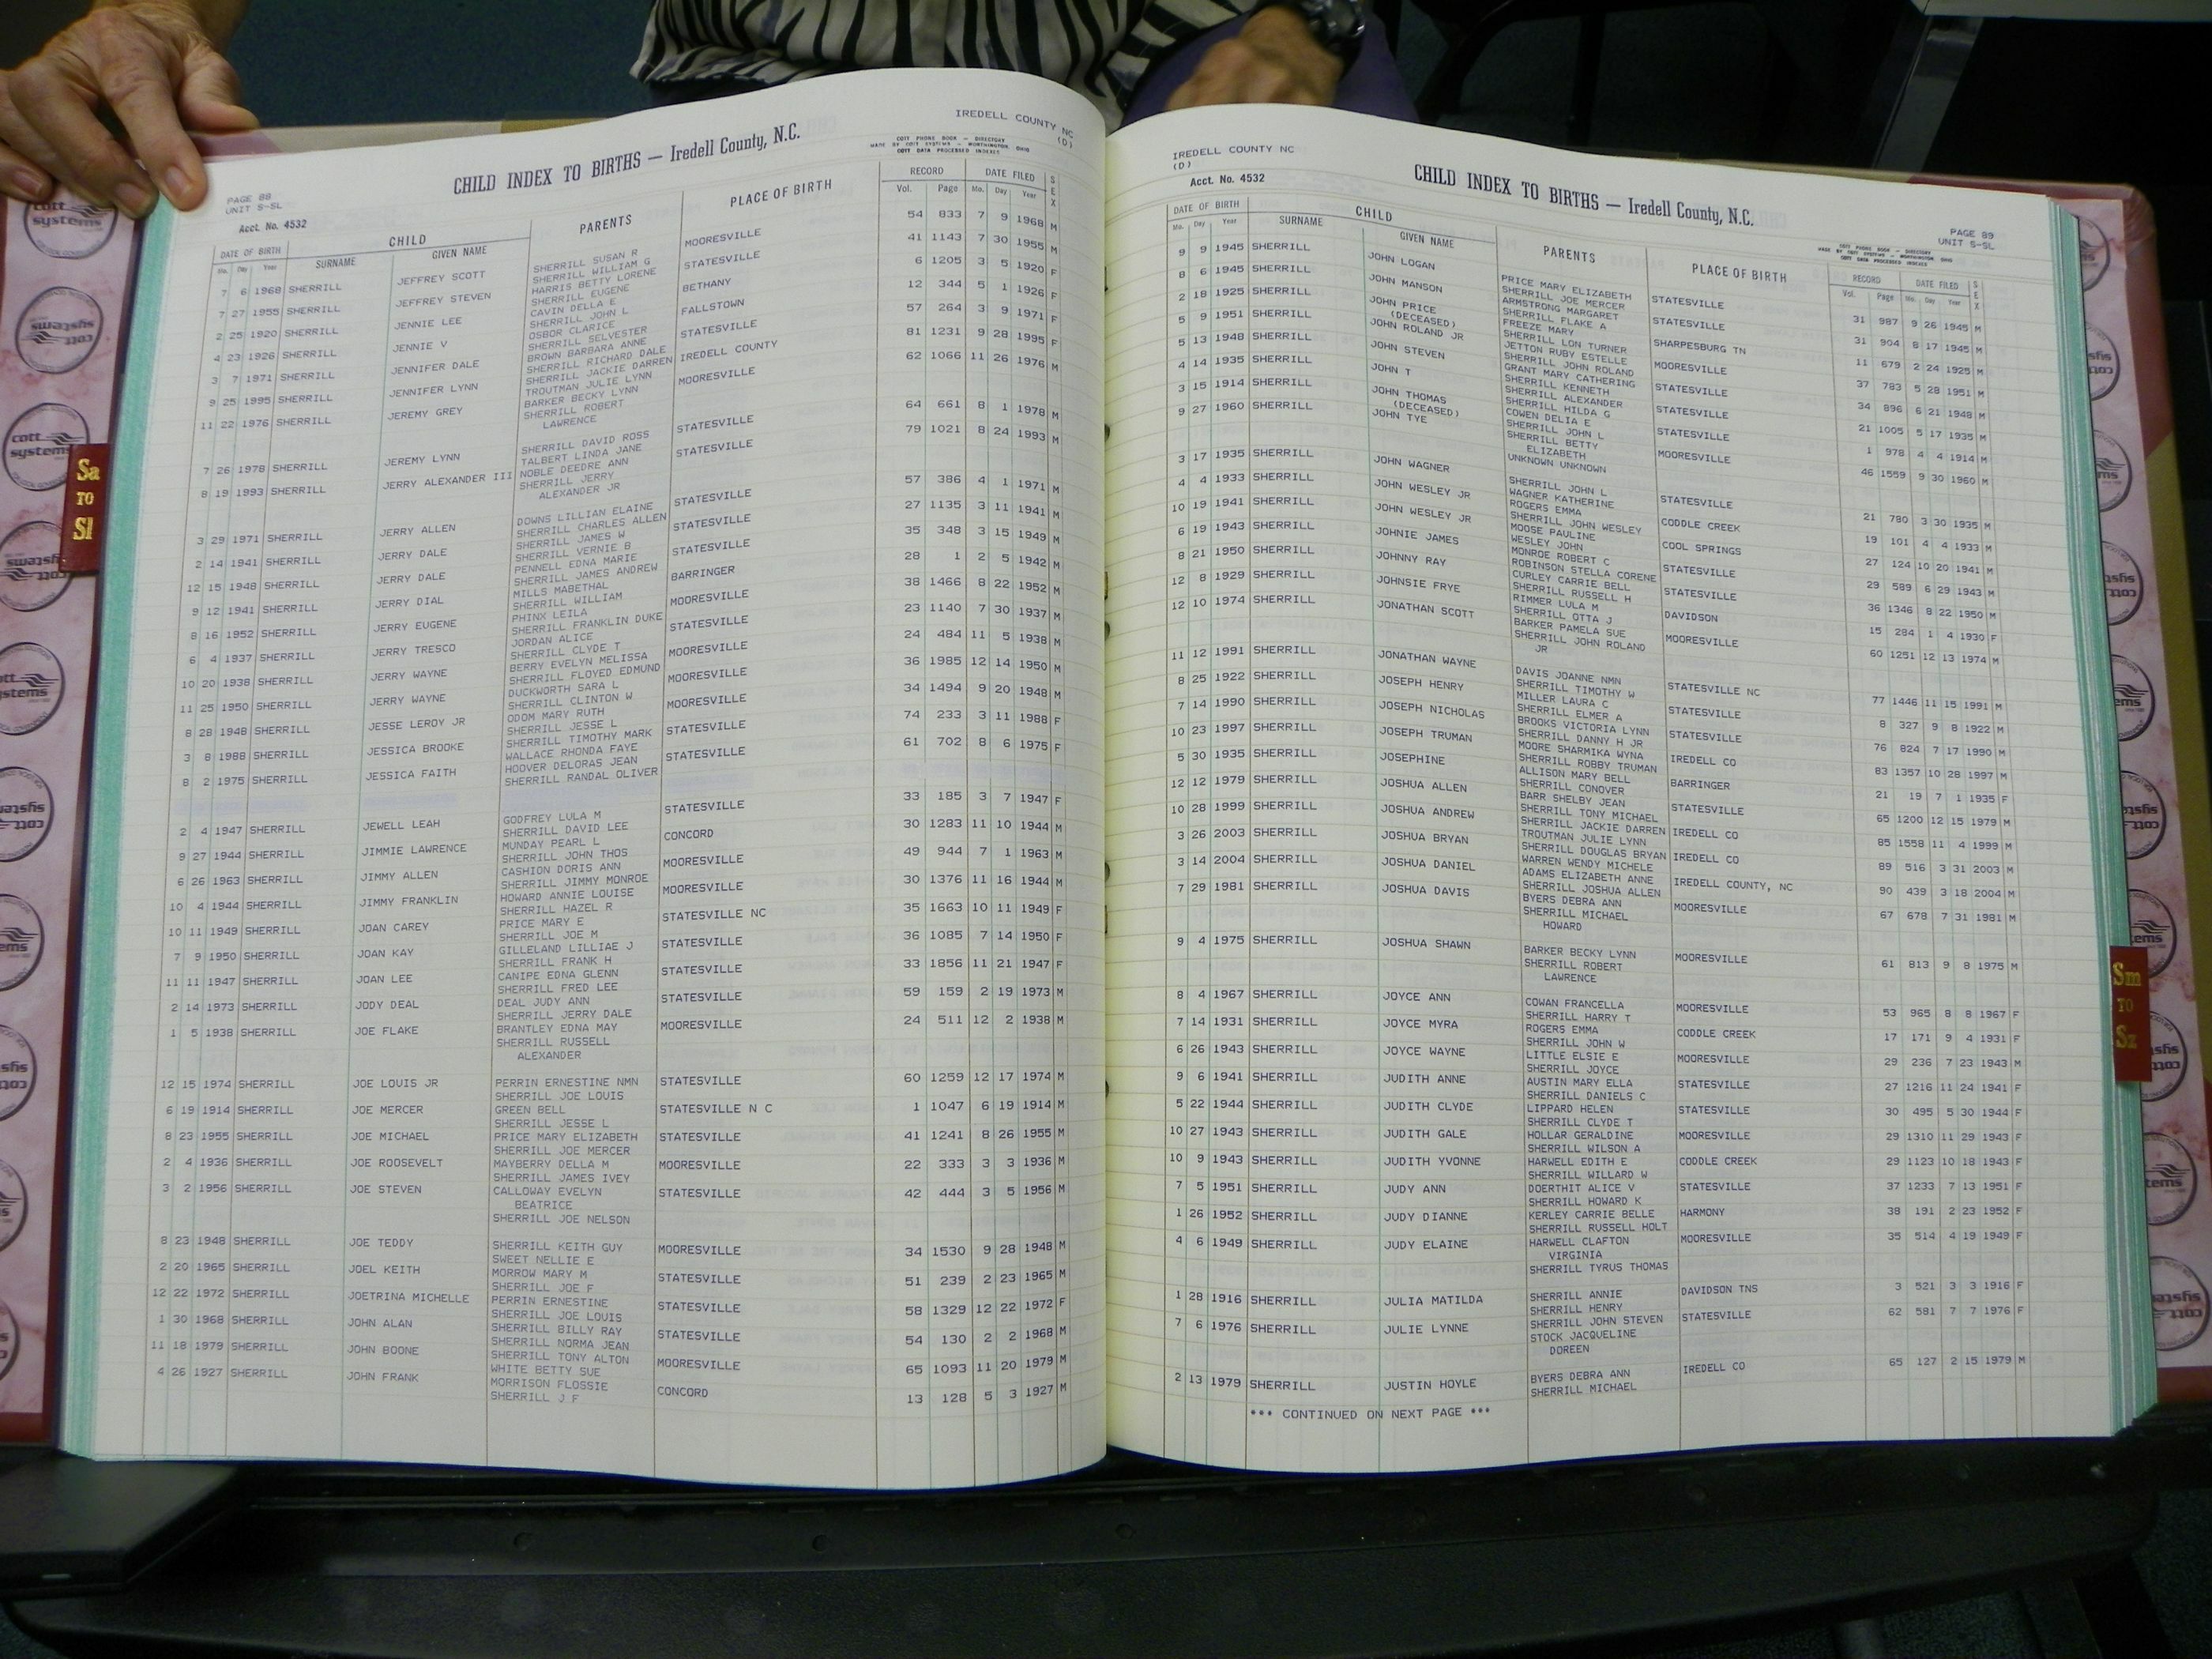 IREDELL COUNTY NC
(D)
CHILD INDEX TO BIRTHS — Iredell County, N.C.
COTT PHONE BOOK — DIRECTORY
MADE BY COTT SYSTEMS — WORTHINGTON, OHIO
COTT DATA PROCESSED INDEXES
PAGE 89
UNIT S-SL
Acct. No. 4532
DATE OF BIRTH CHILD PARENTS PLACE OF BIRTH RECORD DATE FILED SEX
Mo. Day Year SURNAME GIVEN NAME Vol. Page Mo. Day Year
7 6 1968 SHERRILL JEFFREY SCOTT SHERRILL SUSAN R MOORESVILLE 54 833 7 9 1968 M
7 27 1955 SHERRILL JEFFREY STEVEN SHERRILL WILLIAM G STATESVILLE 41 1143 7 30 1955 M
HARRIS BETTY LORENE
2 25 1920 SHERRILL JENNIE LEE SHERRILL EUGENE BETHANY 6 1205 3 5 1920 F
CAVIN DELLA E
4 23 1926 SHERRILL JENNIE V SHERRILL JOHN L FALLSTOWN 12 344 5 1 1926 F
OSBOR CLARICE
3 7 1971 SHERRILL JENNIFER DALE SHERRILL SELVESTER STATESVILLE 57 264 3 9 1971 F
BROWN BARBARA ANNE
SHERRILL RICHARD DALE
9 25 1995 SHERRILL JENNIFER LYNN SHERRILL JACKIE DARREN IREDELL COUNTY 81 1231 9 28 1995 F
TROUTMAN JULIE LYNN
11 22 1976 SHERRILL JEREMY GREY BARKER BECKY LYNN MOORESVILLE 62 1066 11 26 1976 M
SHERRILL ROBERT
LAWRENCE
7 26 1978 SHERRILL JEREMY LYNN SHERRILL DAVID ROSS STATESVILLE 64 661 8 1 1978 M
TALBERT LINDA JANE
8 19 1993 SHERRILL JERRY ALEXANDER III NOBLE DEEDRE ANN STATESVILLE 79 1021 8 24 1993 M
SHERRILL JERRY
ALEXANDER JR
3 29 1971 SHERRILL JERRY ALLEN DOWNS LILLIAN ELAINE STATESVILLE 57 386 4 1 1971 M
SHERRILL CHARLES ALLEN
2 14 1941 SHERRILL JERRY DALE SHERRILL JAMES W STATESVILLE 27 1135 3 11 1941 M
SHERRILL VERNIE B
12 15 1948 SHERRILL JERRY DALE PENNELL EDNA MARIE STATESVILLE 35 348 3 15 1949 M
SHERRILL JAMES ANDREW
9 12 1941 SHERRILL JERRY DIAL MILLS MABETHAL BARRINGER 28 1 2 5 1942 M
SHERRILL WILLIAM
8 16 1952 SHERRILL JERRY EUGENE PHINX LEILA MOORESVILLE 38 1466 8 22 1952 M
SHERRILL FRANKLIN DUKE
6 4 1937 SHERRILL JERRY TRESCO JORDAN ALICE STATESVILLE 23 1140 7 30 1937 M
SHERRILL CLYDE T
10 20 1938 SHERRILL JERRY WAYNE BERRY EVELYN MELISSA MOORESVILLE 24 484 11 5 1938 M
SHERRILL FLOYED EDMUND
11 25 1950 SHERRILL JERRY WAYNE DUCKWORTH SARA L MOORESVILLE 36 1985 12 14 1950 M
SHERRILL CLINTON W
8 28 1948 SHERRILL JESSE LEROY JR ODOM MARY RUTH MOORESVILLE 34 1494 9 20 1948 M
SHERRILL JESSE L
3 8 1988 SHERRILL JESSICA BROOKE SHERRILL TIMOTHY MARK STATESVILLE 74 233 3 11 1988 F
WALLACE RHONDA FAYE
8 2 1975 SHERRILL JESSICA FAITH HOOVER DELORAS JEAN STATESVILLE 61 702 8 6 1975 F
SHERRILL RANDAL OLIVER
2 4 1947 SHERRILL JEWELL LEAH GODFREY LULA M STATESVILLE 33 185 3 7 1947 F
SHERRILL DAVID LEE
9 27 1944 SHERRILL JIMMIE LAWRENCE MUNDAY PEARL L CONCORD 30 1283 11 10 1944 M
SHERRILL JOHN THOS
6 26 1963 SHERRILL JIMMY ALLEN CASHION DORIS ANN MOORESVILLE 49 944 7 1 1963 M
SHERRILL JIMMY MONROE
10 4 1944 SHERRILL JIMMY FRANKLIN HOWARD ANNIE LOUISE MOORESVILLE 30 1376 11 16 1944 M
SHERRILL HAZEL R
10 11 1949 SHERRILL JOAN CAREY PRICE MARY E STATESVILLE NC 35 1663 10 11 1949 F
SHERRILL JOE M
7 9 1950 SHERRILL JOAN KAY GILLELAND LILLIAE J STATESVILLE 36 1085 7 14 1950 F
SHERRILL FRANK H
11 11 1947 SHERRILL JOAN LEE CANIPE EDNA GLENN STATESVILLE 33 1856 11 21 1947 F
SHERRILL FRED LEE
2 14 1973 SHERRILL JODY DEAL DEAL JUDY ANN STATESVILLE 59 159 2 19 1973 M
SHERRILL JERRY DALE
1 5 1938 SHERRILL JOE FLAKE BRANTLEY EDNA MAY MOORESVILLE 24 511 12 2 1938 M
SHERRILL RUSSELL
ALEXANDER
12 15 1974 SHERRILL JOE LOUIS JR PERRIN ERNESTINE NMN STATESVILLE 60 1259 12 17 1974 M
SHERRILL JOE LOUIS
6 19 1914 SHERRILL JOE MERCER GREEN BELL STATESVILLE N C 1 1047 6 19 1914 M
SHERRILL JESSE L
8 23 1955 SHERRILL JOE MICHAEL PRICE MARY ELIZABETH STATESVILLE 41 1241 8 26 1955 M
SHERRILL JOE MERCER
2 4 1936 SHERRILL JOE ROOSEVELT MAYBERRY DELLA M MOORESVILLE 22 333 3 3 1936 M
SHERRILL JAMES IVEY
3 2 1956 SHERRILL JOE STEVEN CALLOWAY EVELYN STATESVILLE 42 444 3 5 1956 M
BEATRICE
SHERRILL JOE NELSON
8 23 1948 SHERRILL JOE TEDDY SHERRILL KEITH GUY MOORESVILLE 34 1530 9 28 1948 M
SWEET NELLIE E
2 20 1965 SHERRILL JOEL KEITH MORROW MARY M STATESVILLE 51 239 2 23 1965 M
SHERRILL JOE F
12 22 1972 SHERRILL JOETRINA MICHELLE PERRIN ERNESTINE STATESVILLE 58 1329 12 22 1972 F
SHERRILL JOE LOUIS
1 30 1968 SHERRILL JOHN ALAN SHERRILL BILLY RAY STATESVILLE 54 130 2 2 1968 M
SHERRILL NORMA JEAN
11 18 1979 SHERRILL JOHN BOONE SHERRILL TONY ALTON MOORESVILLE 65 1093 11 20 1979 M
WHITE BETTY SUE
4 26 1927 SHERRILL JOHN FRANK MORRISON FLOSSIE CONCORD 13 128 5 3 1927 M
SHERRILL J F
IREDELL COUNTY NC
(D)
Acct. No. 4532
CHILD INDEX TO BIRTHS — Iredell County, N.C.
PAGE 89
UNIT S-SL
COTT PHONE BOOK — DIRECTORY
MADE BY COTT SYSTEMS — WORTHINGTON, OHIO
COTT DATA PROCESSED INDEXES
DATE OF BIRTH CHILD PARENTS PLACE OF BIRTH RECORD DATE FILED SEX
Mo. Day Year SURNAME GIVEN NAME Vol. Page Mo. Day Year
9 9 1945 SHERRILL JOHN LOGAN PRICE MARY ELIZABETH STATESVILLE 31 987 9 26 1945 M
SHERRILL JOE MERCER
8 6 1945 SHERRILL JOHN MANSON ARMSTRONG MARGARET STATESVILLE 31 904 8 17 1945 M
SHERRILL FLAKE A
2 18 1925 SHERRILL JOHN PRICE FREEZE MARY SHARPESBURG TN 11 679 2 24 1925 M
(DECEASED) SHERRILL LON TURNER
5 9 1951 SHERRILL JOHN ROLAND JR JETTON RUBY ESTELLE MOORESVILLE 37 783 5 28 1951 M
SHERRILL JOHN ROLAND
5 13 1948 SHERRILL JOHN STEVEN GRANT MARY CATHERING STATESVILLE 34 896 6 21 1948 M
SHERRILL KENNETH
4 14 1935 SHERRILL JOHN T SHERRILL ALEXANDER STATESVILLE 21 1005 5 17 1935 M
SHERRILL HILDA G
3 15 1914 SHERRILL JOHN THOMAS COWEN DELIA E STATESVILLE 1 978 4 4 1914 M
(DECEASED) SHERRILL JOHN L
9 27 1960 SHERRILL JOHN TYE SHERRILL BETTY MOORESVILLE 46 1559 9 30 1960 M
ELIZABETH
UNKNOWN UNKNOWN
3 17 1935 SHERRILL JOHN WAGNER SHERRILL JOHN L STATESVILLE 21 780 3 30 1935 M
WAGNER KATHERINE
4 4 1933 SHERRILL JOHN WESLEY JR ROGERS EMMA CODDLE CREEK 19 101 4 4 1933 M
SHERRILL JOHN WESLEY
10 19 1941 SHERRILL JOHN WESLEY JR MOOSE PAULINE COOL SPRINGS 27 124 10 20 1941 M
WESLEY JOHN
6 19 1943 SHERRILL JOHNIE JAMES MONROE ROBERT C STATESVILLE 29 589 6 29 1943 M
ROBINSON STELLA CORENE
8 21 1950 SHERRILL JOHNNY RAY CURLEY CARRIE BELL STATESVILLE 36 1346 8 22 1950 M
SHERRILL RUSSELL H
12 8 1929 SHERRILL JOHNSIE FRYE RIMMER LULA M DAVIDSON 15 284 1 4 1930 F
SHERRILL OTTA J
12 10 1974 SHERRILL JONATHAN SCOTT BARKER PAMELA SUE MOORESVILLE 60 1251 12 13 1974 M
SHERRILL JOHN ROLAND
JR
11 12 1991 SHERRILL JONATHAN WAYNE DAVIS JOANNE NMN STATESVILLE NC 77 1446 11 15 1991 M
SHERRILL TIMOTHY W
8 25 1922 SHERRILL JOSEPH HENRY MILLER LAURA C STATESVILLE 8 327 9 8 1922 M
SHERRILL ELMER A
7 14 1990 SHERRILL JOSEPH NICHOLAS BROOKS VICTORIA LYNN STATESVILLE 76 824 7 17 1990 M
SHERRILL DANNY H JR
10 23 1997 SHERRILL JOSEPH TRUMAN MOORE SHARMIKA WYNA IREDELL CO 83 1357 10 28 1997 M
SHERRILL ROBBY TRUMAN
5 30 1935 SHERRILL JOSEPHINE ALLISON MARY BELL BARRINGER 21 19 7 1 1935 F
SHERRILL CONOVER
12 12 1979 SHERRILL JOSHUA ALLEN BARR SHELBY JEAN STATESVILLE 65 1200 12 15 1979 M
SHERRILL TONY MICHAEL
10 28 1999 SHERRILL JOSHUA ANDREW SHERRILL JACKIE DARREN IREDELL CO 85 1558 11 4 1999 M
TROUTMAN JULIE LYNN
3 26 2003 SHERRILL JOSHUA BRYAN SHERRILL DOUGLAS BRYAN IREDELL CO 89 516 3 31 2003 M
WARREN WENDY MICHELE
3 14 2004 SHERRILL JOSHUA DANIEL ADAMS ELIZABETH ANNE IREDELL COUNTY, NC 90 439 3 18 2004 M
SHERRILL JOSHUA ALLEN
7 29 1981 SHERRILL JOSHUA DAVIS BYERS DEBRA ANN MOORESVILLE 67 678 7 31 1981 M
SHERRILL MICHAEL
HOWARD
9 4 1975 SHERRILL JOSHUA SHAWN BARKER BECKY LYNN MOORESVILLE 61 813 9 8 1975 M
SHERRILL ROBERT
LAWRENCE
8 4 1967 SHERRILL JOYCE ANN COWAN FRANCELLA MOORESVILLE 53 965 8 8 1967 F
SHERRILL HARRY T
7 14 1931 SHERRILL JOYCE MYRA ROGERS EMMA CODDLE CREEK 17 171 9 4 1931 F
SHERRILL JOHN W
6 26 1943 SHERRILL JOYCE WAYNE LITTLE ELSIE E MOORESVILLE 29 236 7 23 1943 M
SHERRILL JOYCE
9 6 1941 SHERRILL JUDITH ANNE AUSTIN MARY ELLA STATESVILLE 27 1216 11 24 1941 F
SHERRILL DANIELS C
5 22 1944 SHERRILL JUDITH CLYDE LIPPARD HELEN STATESVILLE 30 495 5 30 1944 F
SHERRILL CLYDE T
10 27 1943 SHERRILL JUDITH GALE HOLLAR GERALDINE MOORESVILLE 29 1310 11 29 1943 F
SHERRILL WILSON A
10 9 1943 SHERRILL JUDITH YVONNE HARWELL EDITH E CODDLE CREEK 29 1123 10 18 1943 F
SHERRILL WILLARD W
7 5 1951 SHERRILL JUDY ANN DOERTHIT ALICE V STATESVILLE 37 1233 7 13 1951 F
SHERRILL HOWARD K
1 26 1952 SHERRILL JUDY DIANNE KERLEY CARRIE BELLE HARMONY 38 191 2 23 1952 F
SHERRILL RUSSELL HOLT
4 6 1949 SHERRILL JUDY ELAINE HARWELL CLAFTON MOORESVILLE 35 514 4 19 1949 F
VIRGINIA
SHERRILL TYRUS THOMAS
1 28 1916 SHERRILL JULIA MATILDA SHERRILL ANNIE DAVIDSON TNS 3 521 3 3 1916 F
SHERRILL HENRY
7 6 1976 SHERRILL JULIE LYNNE SHERRILL JOHN STEVEN STATESVILLE 62 581 7 7 1976 F
STOCK JACQUELINE
DOREEN
2 13 1979 SHERRILL JUSTIN HOYLE BYERS DEBRA ANN IREDELL CO 65 127 2 15 1979 M
SHERRILL MICHAEL
*** CONTINUED ON NEXT PAGE ***
Sa
TO
Sl
Sm
TO
Sz
cott
systems